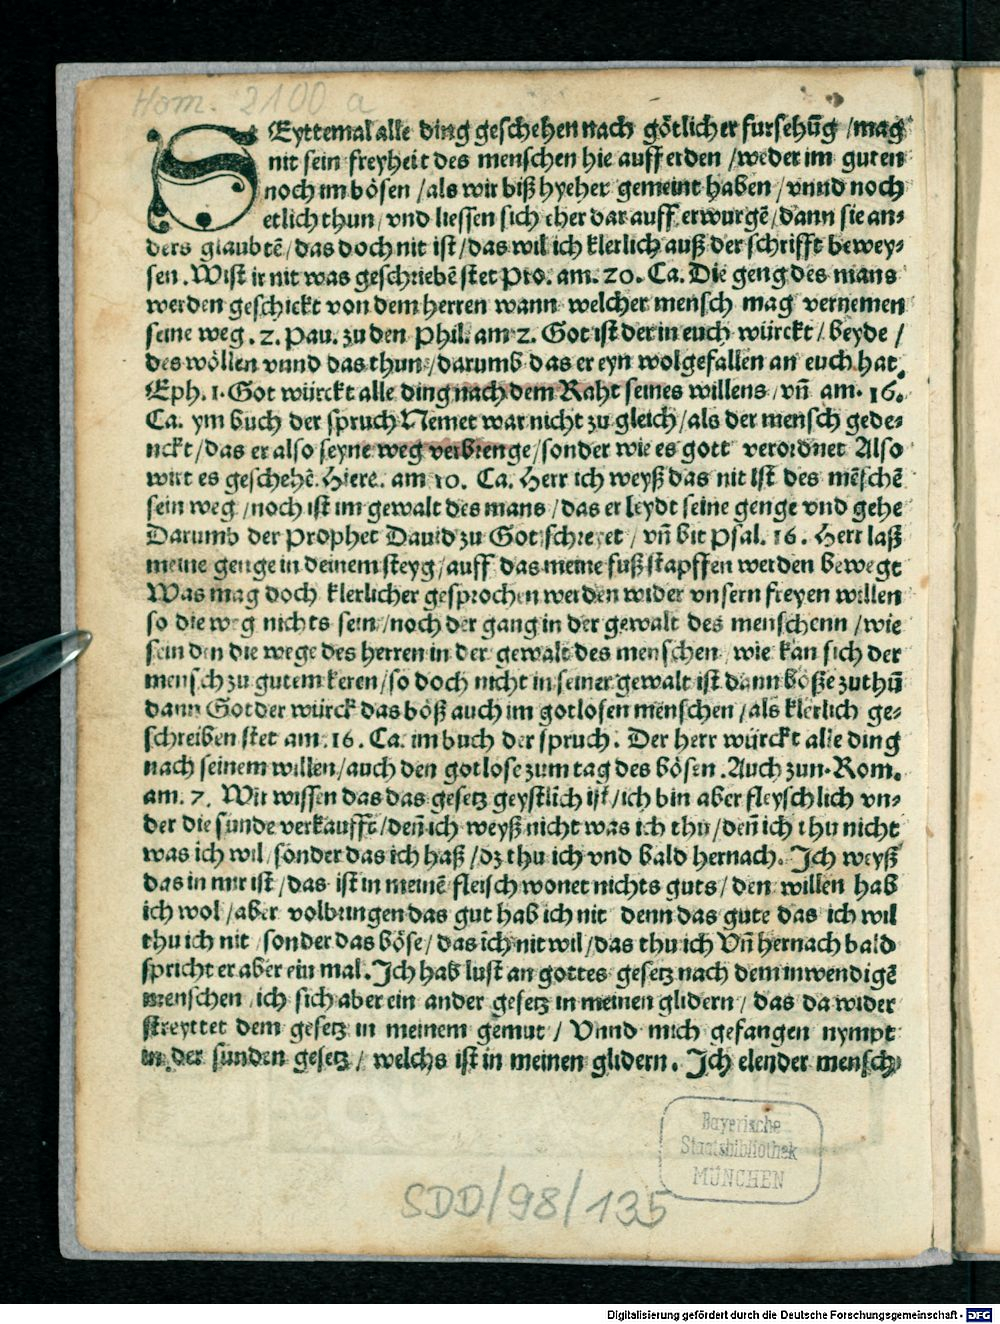 Hom. 2100 a
SEyttemal alle ding geschehen nach götlicher fursehūg / mag
nit sein freyheit des menschen hie auff erden / weder im guten
noch im bösen / als wir biß hyeher gemeint haben / vnnd noch
etlich thun / vnd liessen sich eher dar auff erwurgē / dann sie an⸗
ders glaubtē / das doch nit ist / das wil ich klerlich auß der schrifft bewey⸗
sen. Wist ir nit was geschriebē stet Pro. am. 20. Ca. Die geng des mans
werden geschickt von dem herren wann welcher mensch mag vernemen
seine weg. 2. Pau. zu den Phil. am 2. Got ist der in euch würckt / beyde /
des wöllen vnnd das thun / darumb das er eyn wolgefallen an euch hat.
Eph. 1. Got würckt alle ding nach dem Raht seines willens / vn̄ am. 16.
Ca. ym buch der spruch Nemet war nicht zu gleich / als der mensch gede⸗
nckt / das er also seyne weg verbrenge / sonder wie es gott verordnet Also
wirt es geschehē. Hiere. am 10. Ca. Herr ich weyß das nit ist des mēschē
sein weg / noch ist im gewalt des mans / das er leydt seine genge vnd gehe
Darumb der Prophet Dauid zu Got schreyet / vn̄ bit Psal. 16. Herr laß
meine genge in deinem steyg / auff das meine fußstapffen werden bewegt
Was mag doch klerlicher gesprochen werden wider vnsern freyen willen
so die weg nichts sein / noch der gang in der gewalt des menschenn / wie
sein den die wege des herren in der gewalt des menschen / wie kan sich der
mensch zu gutem keren / so doch nicht in seiner gewalt ist dann böße zuthū
dann Got der würck das böß auch im gotlosen menschen / als klerlich ge⸗
schreiben stet am. 16. Ca. im buch der spruch. Der herr würckt alle ding
nach seinem willen / auch den gotlose zum tag des bösen. Auch zun. Rom.
am. 7. Wir wissen das das gesetz geystlich ist / ich bin aber fleyschlich vn⸗
der die sunde verkaufft / den̄ ich weyß nicht was ich thu / den̄ ich thu nicht
was ich wil / sonder das ich haß / dz thu ich vnd bald hernach. Ich weyß
das in mir ist / das ist in meinē fleisch wonet nichts guts / den willen hab
ich wol / aber volbringen das gut hab ich nit denn das gute das ich wil
thu ich nit / sonder das böse / das ich nit wil / das thu ich Vn̄ hernach bald
spricht er aber ein mal. Ich hab lust an gottes gesetz nach dem inwendigē
menschen / ich sich aber ein ander gesetz in meinen glidern / das da wider
streyttet dem gesetz in meinem gemut / Vnnd mich gefangen nympt
in der sunden gesetz / welchs ist in meinen glidern. Ich elender mensch
Bayerische
Staatsbibliothek
MÜNCHEN
SDD/98/135
Digitalisierung gefördert durch die Deutsche Forschungsgemeinschaft - DFG